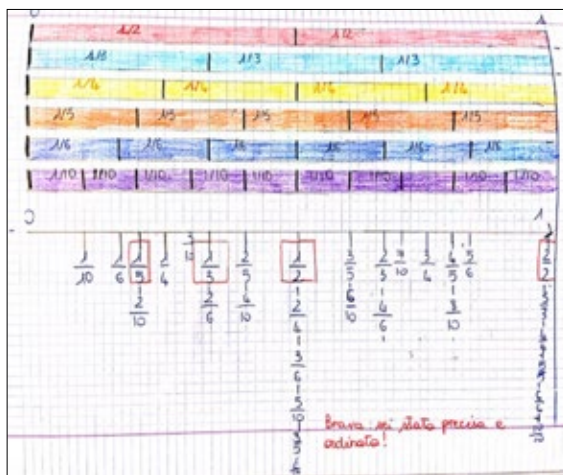 0 1
1/2 1/2
1/3 1/3 1/3
1/4 1/4 1/4 1/4
1/5 1/5 1/5 1/5 1/5
1/6 1/6 1/6 1/6 1/6 1/6
1/10 1/10 1/10 1/10 1/10 1/10 1/10 1/10 1/10
0 1
1/10 1/6 1/5 1/4 1/3 2/5 1/2 3/5 2/3 7/10 3/4 4/5 5/6 2/2
2/10 2/6 4/10 2/4 6/10 4/6
3/6
5/10
Brava sei stata precisa e
ordinata!